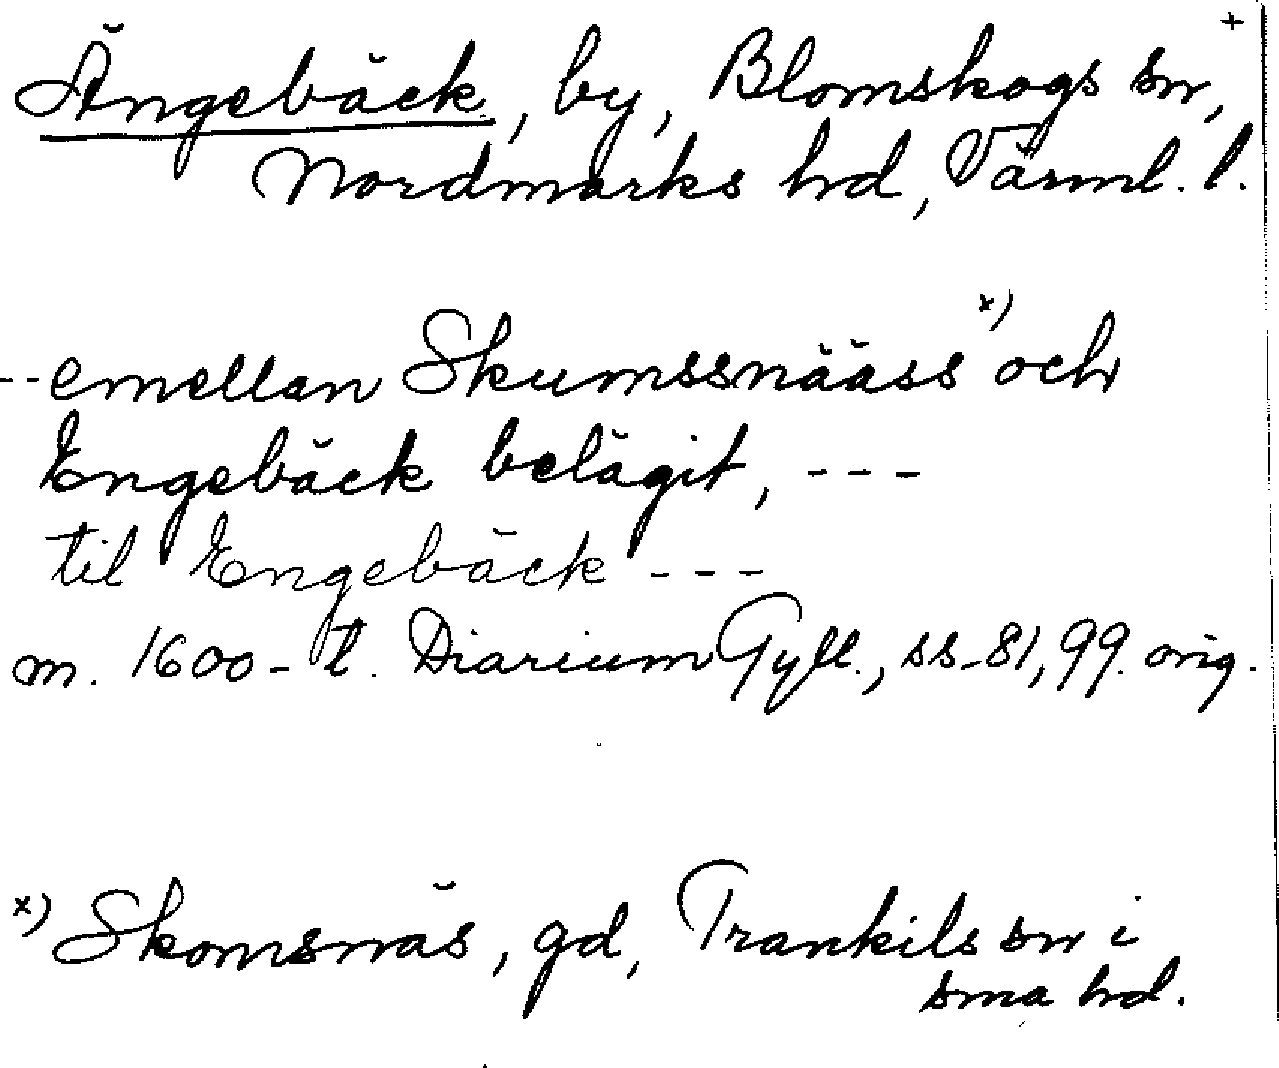 +
Ängebäck, by, Blomskogs sn,
Nordmarks hd, Värml. l.
-- emellan Skumssnääss x) och
Engebäck belägit, ---
til Engebäck ---
m. 1600-t. Diarium Gyll., ss. 81, 99. orig.
x) Skomsnäs, gd, Trankils sn i
sma hd.